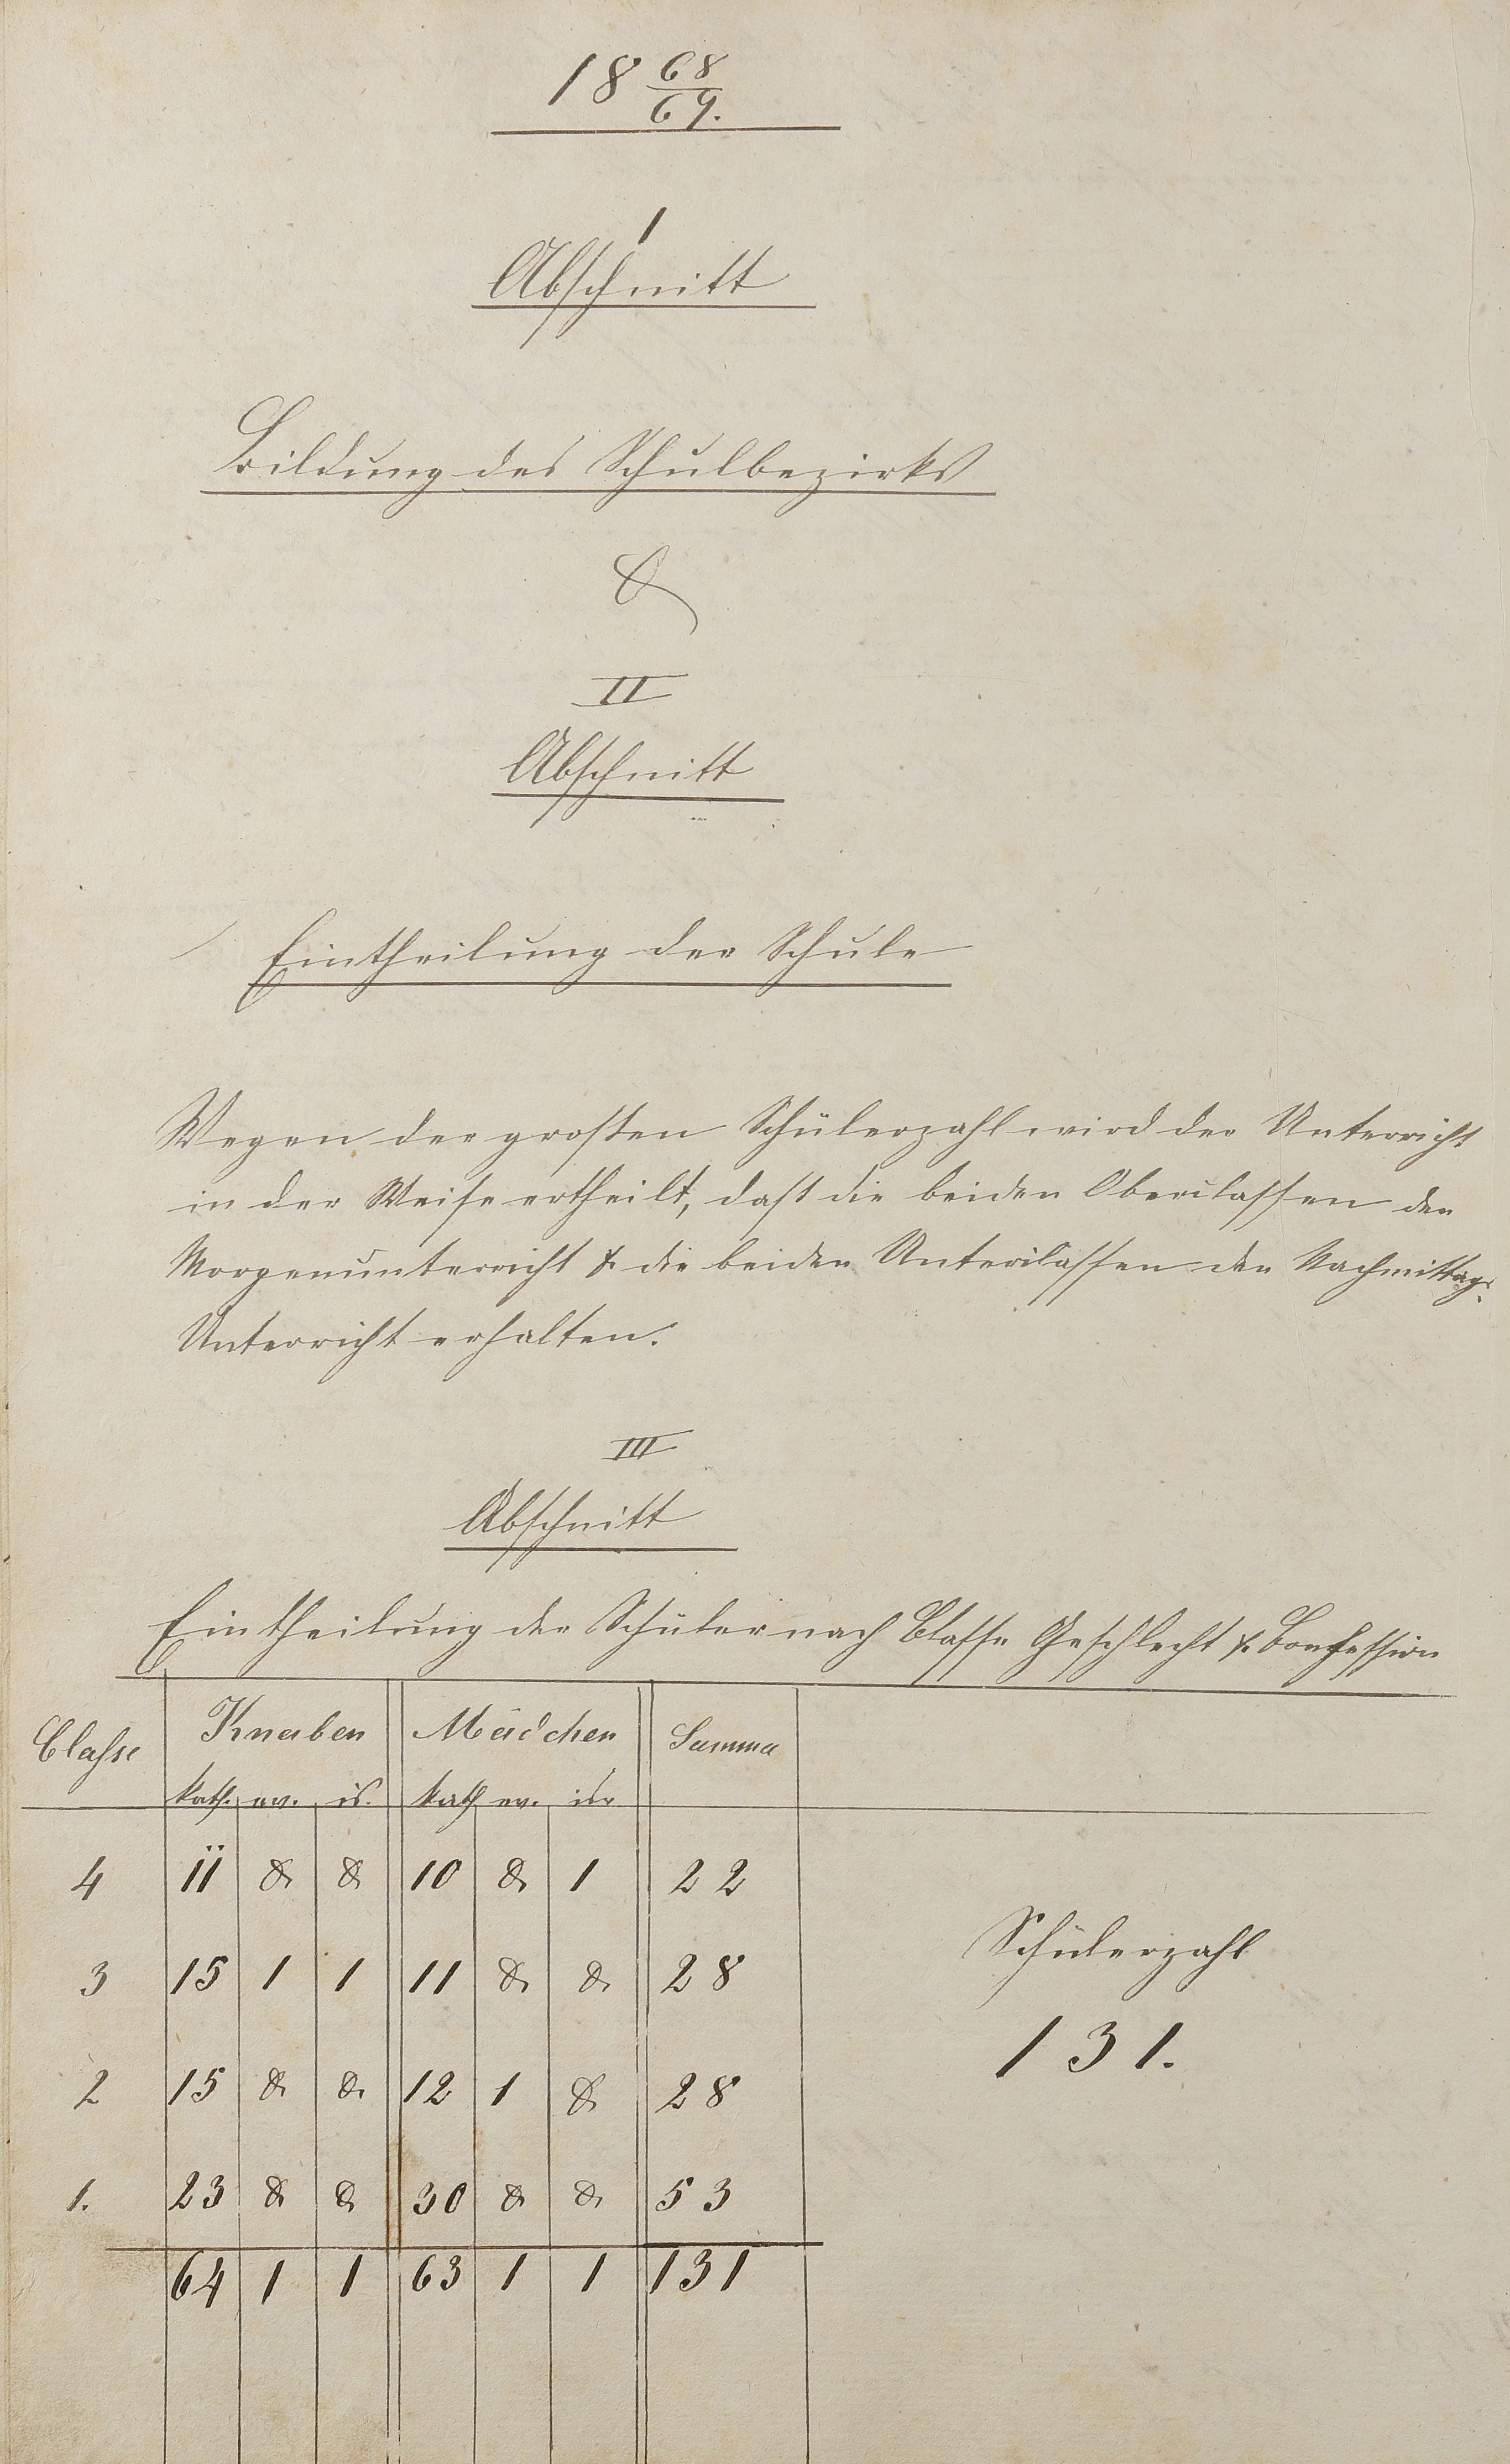 18 68/69.
1
Abschnitt
Bildung des Schulbezirks
&
II
Abschnitt
Eintheilung der Schule
Wegen der großen Schülerzahl wird der Unterricht
in der Weise ertheilt, daß die beiden Oberclassen den
Morgenunterricht & die beiden Unterclassen den Nachmittags-
Unterricht erhalten.
III
Abschnitt
Eintheilung der Schüler nach Classe Geschlecht & Confession
Classe Knaben Mädchen Summa
kath. ev. is. kath ev. isr
4 11 & & 10 & 1 22
3 15 1 1 11 & & 28
2 15 & & 12 1 & 28
1. 23 & & 30 & & 53
64 1 1 63 1 1 131
Schülerzahl
131.